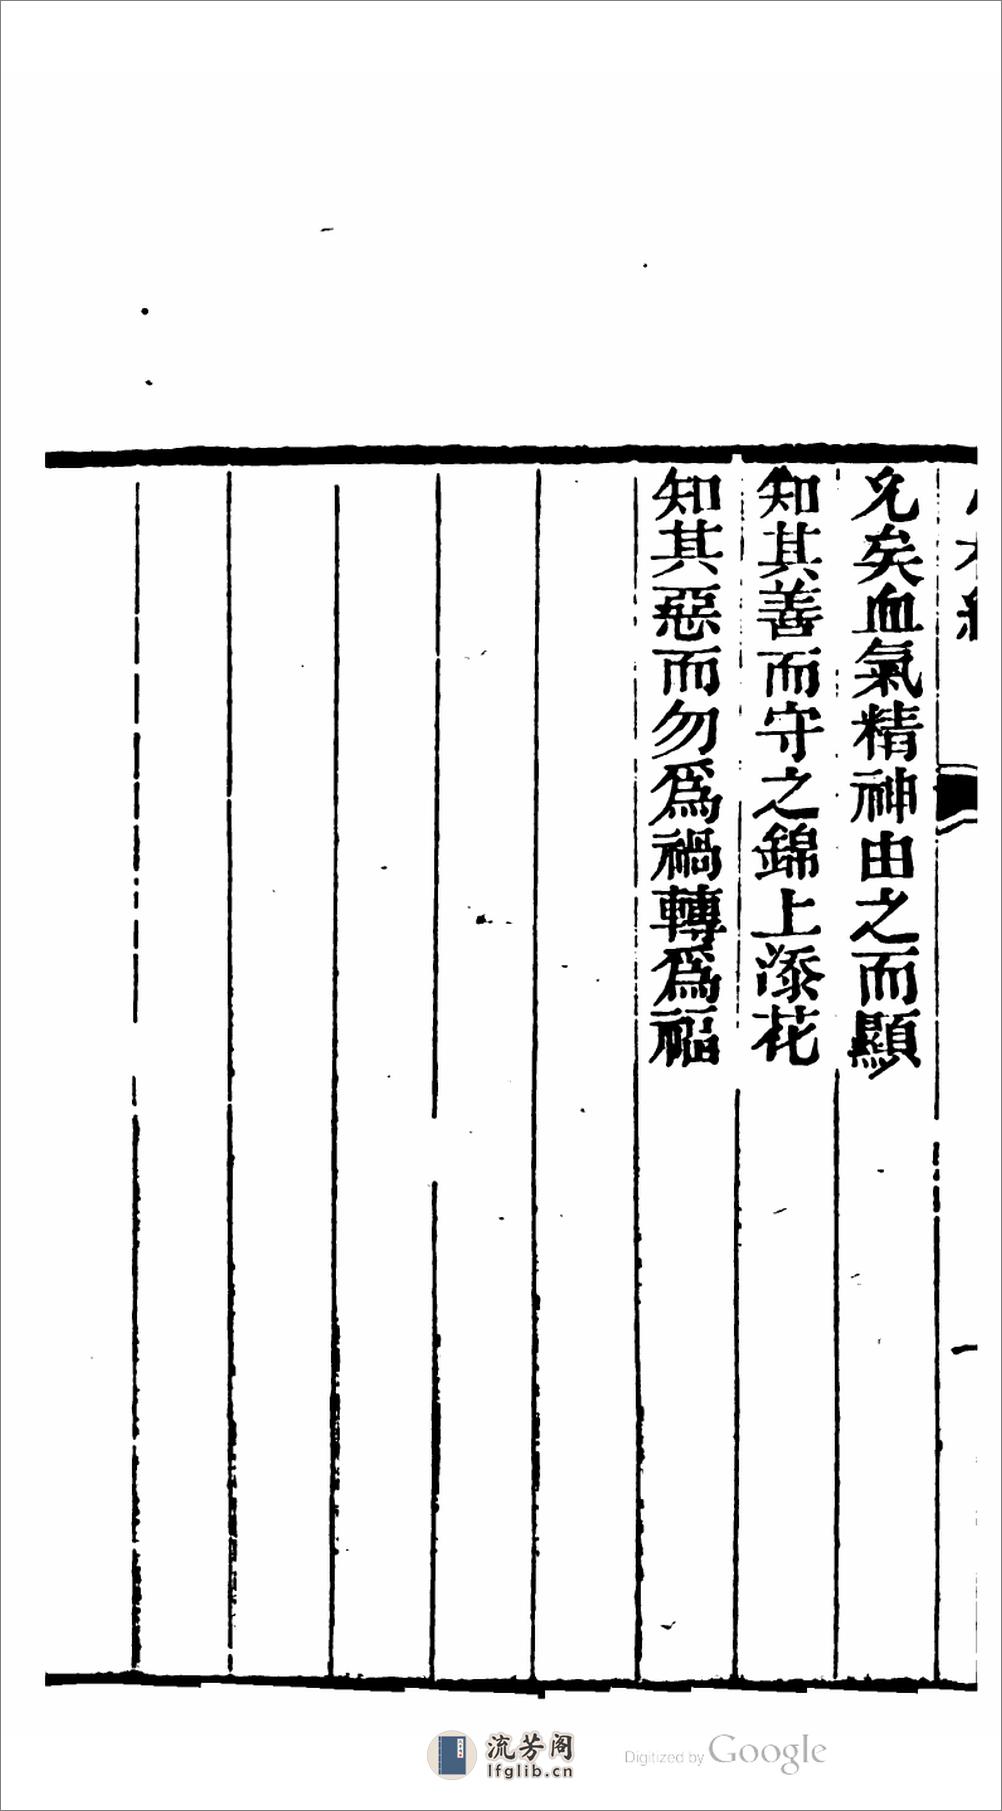 兊矣血氣精神由之而顯
知其善而守之錦上添花
知其惡而勿爲禍轉爲福
流芳阁
lfglib.cn
Digitized by Google